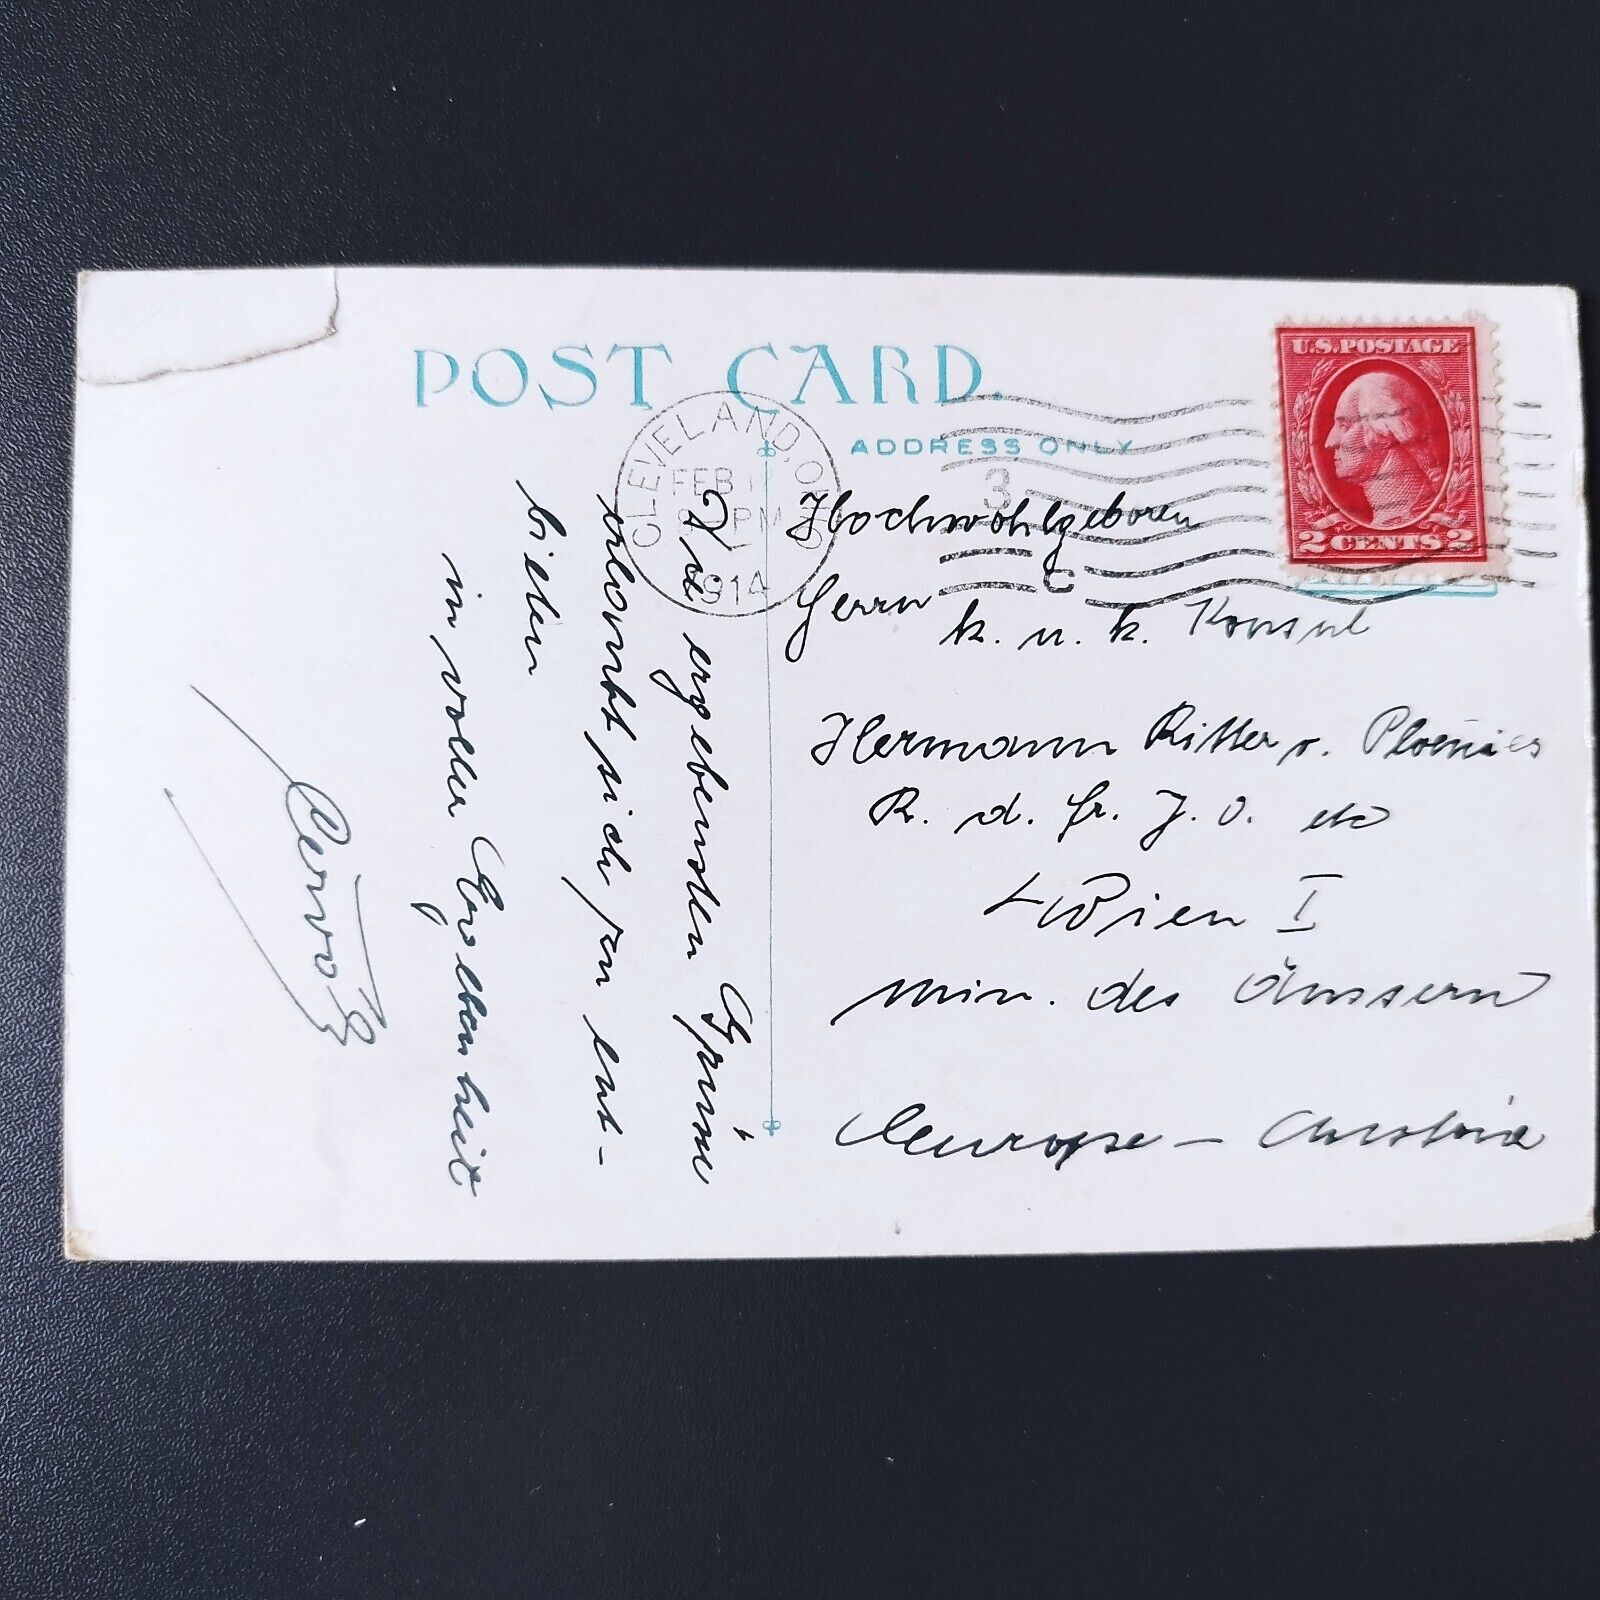 POST CARD.
ADDRESS ONLY
U.S. POSTAGE
2 CENTS 2
CLEVELAND, O
FEB 1
PM
1914
3
C
Hochwohlgeboren
Herrn
k. u. k. Konsul
Hermann Ritter v. Ploennies
R. d. Fr. J. O. etc
Wien I
Min. des Äussern
Europe - Austria
Die ergebensten Grüsse
erlaubt sich zu ent-
bieten
in voller Ergebenheit